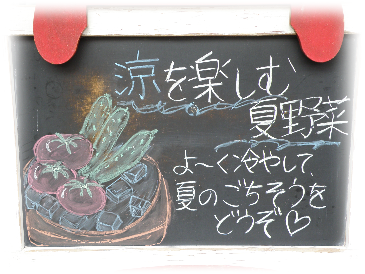 涼を楽しむ
夏野菜
よ〜く冷やして、
夏のごちそうを
どうぞ♡